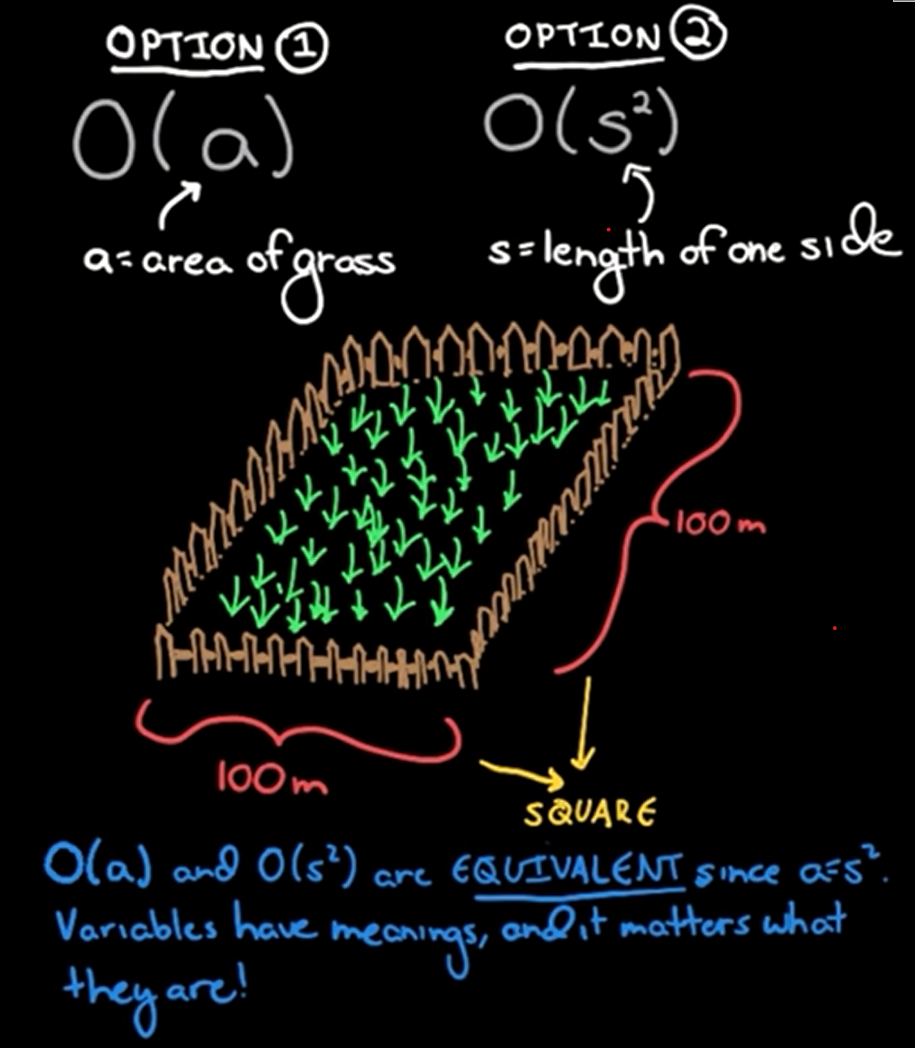 OPTION ①
O(a)
a=area of grass
OPTION ②
O(s²)
s=length of one side
100m
100m
SQUARE
O(a) and O(s²) are EQUIVALENT since a=s².
Variables have meanings, and it matters what
they are!